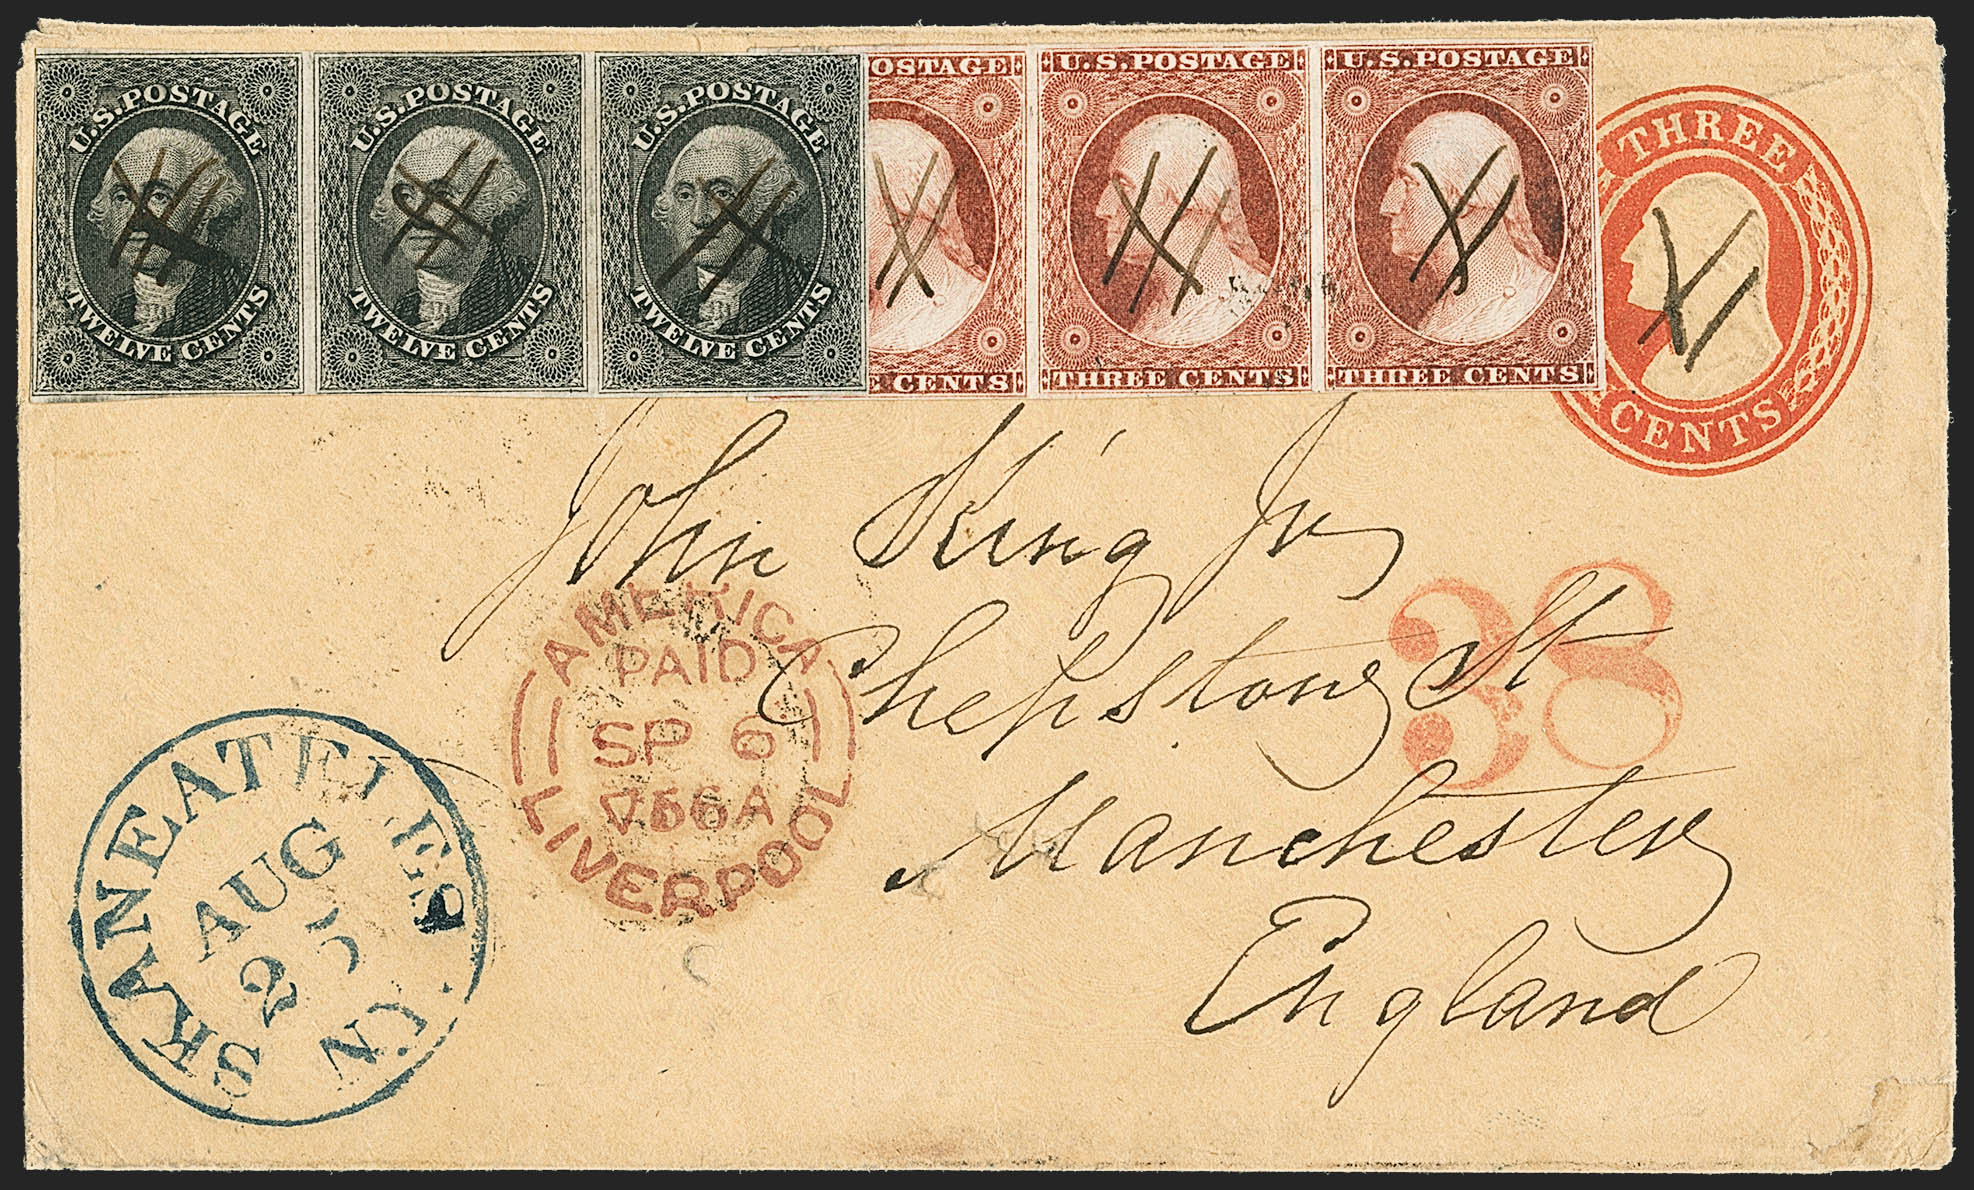 U.S.POSTAGE
TWELVE CENTS
U.S.POSTAGE
TWELVE CENTS
U.S.POSTAGE
TWELVE CENTS
OSTAGE
E CENTS
U.S.POSTAGE
THREE CENTS
U.S.POSTAGE
THREE CENTS
THREE
CENTS
John King Jr
Chepstow St
Manchester
England
38
AMERICA
PAID
SP 6
56A
LIVERPOOL
SKANEATELES
AUG
25
N.Y.